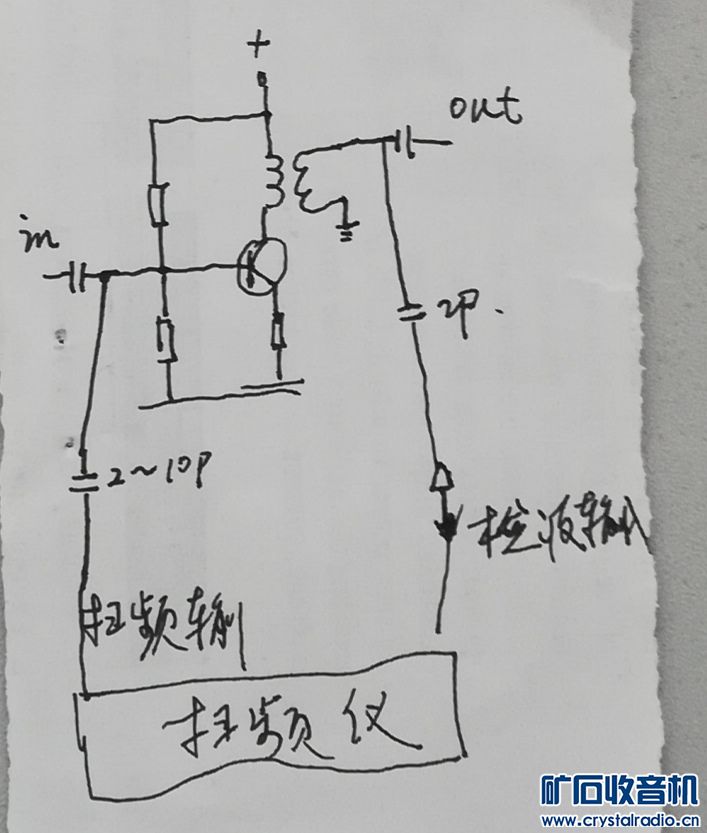 +
out
in
2P.
2~10P
检波输入
扫频输
扫频仪
矿石收音机
www.crystalradio.cn